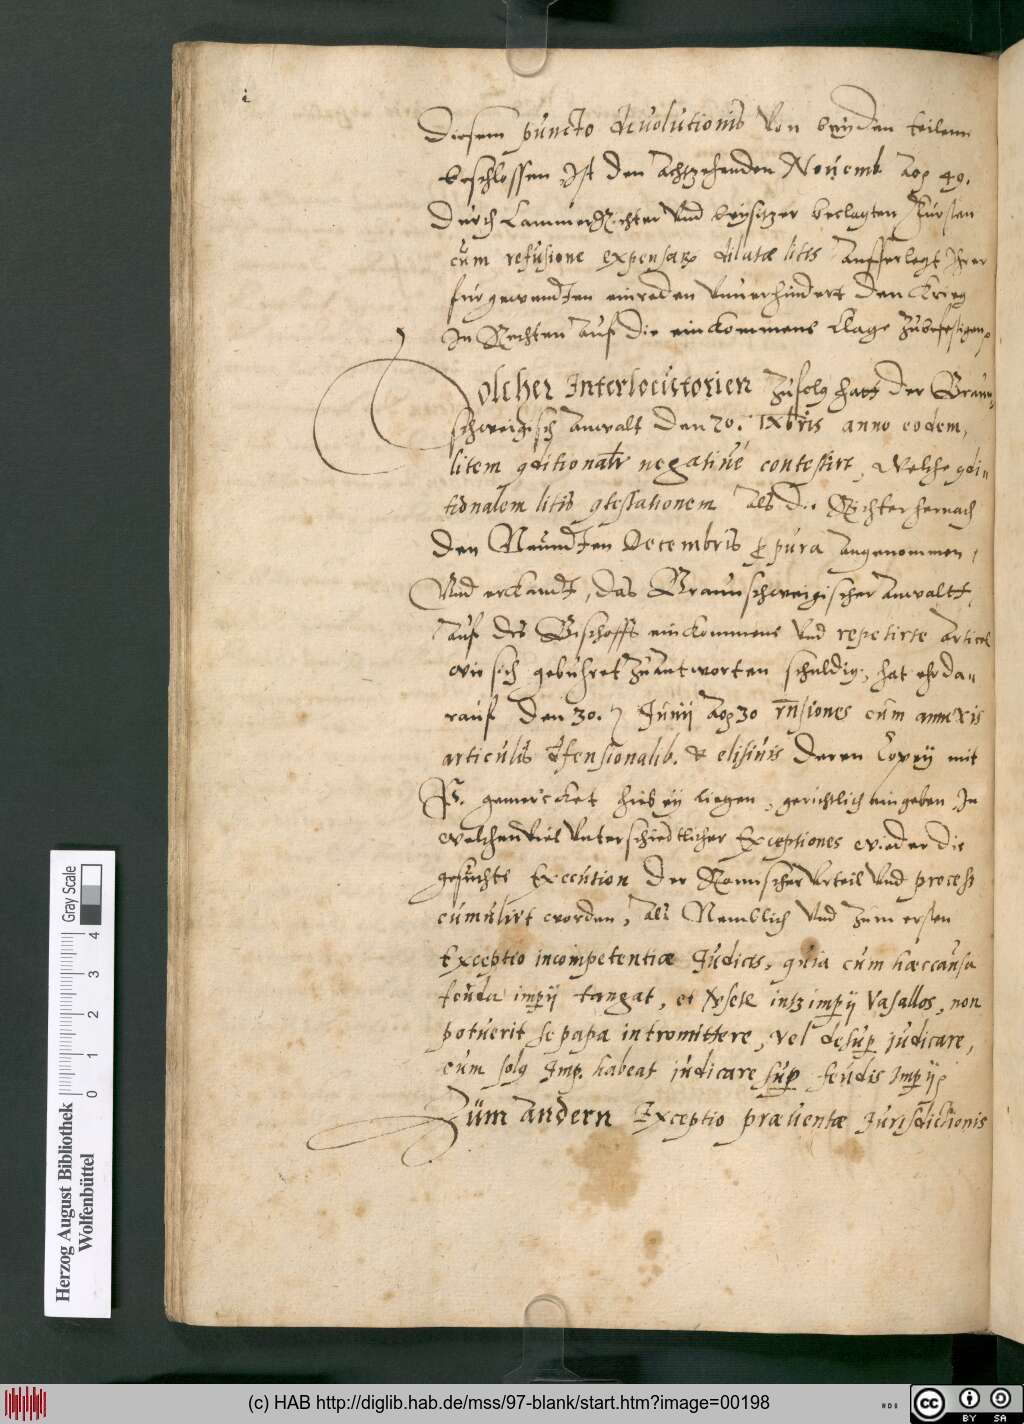 diesem puncto deuolutionis von beyden teilenn
beschlossen Ist den Achtzehenden Nouemb. Aõ 49.
durch Cammer Richter vnd beysitzer beclagten Fursten
cum refusione expensarũ dilatæ litis aufferlegt Ihrer
fur gewendten einreden vnuerhindert den Krieg
In Rechten auf die einkommene Clage zubefestigen
Solcher Interlocutorien zufolg hatt der Braun„
schweigisch Anwalt den 20. IXbris anno eodem,
litem gditionaltr negatiue contestirt, Welche gdi„
tionalem litis gtestationem als die Richter hernach
den Neundten Decembris p pura angenommen,
Vnd erckandt, das Braunschweigischer Anwaltt,
auf des Bischoffs einkommene vnd repetirte Articel
wie sich gebuhret zu Antworten schuldig, hat ehr da„
rauf den 30. Junij Aõ 50 rñsiones cum annexis
articulis dfensionalib. & elisiuis deren Copey mit
P. gemercket hiebey liegen, gerichtlich eingeben In
welchen viel vnterschiedtlicher Exceptiones wieder die
gesuchte Execution der Romischer vrteil vnd process
cumulirt worden, Als Nemblich vnd zum ersten
Exceptio incompetentiæ Judicis, quia cum hæc causa
feuda impij tangat, et vsetr intz impij Vasallos, non
potuerit se papa intromittere, vel desup judicare,
cum solg Imp. habeat judicare sup feudis Impij
Zum andern Exceptio præuentæ Jurisdictionis
Herzog August Bibliothek
Wolfenbüttel
0 1 2 3 4
Gray Scale
(c) HAB http://diglib.hab.de/mss/97-blank/start.htm?image=00198
cc
BY SA